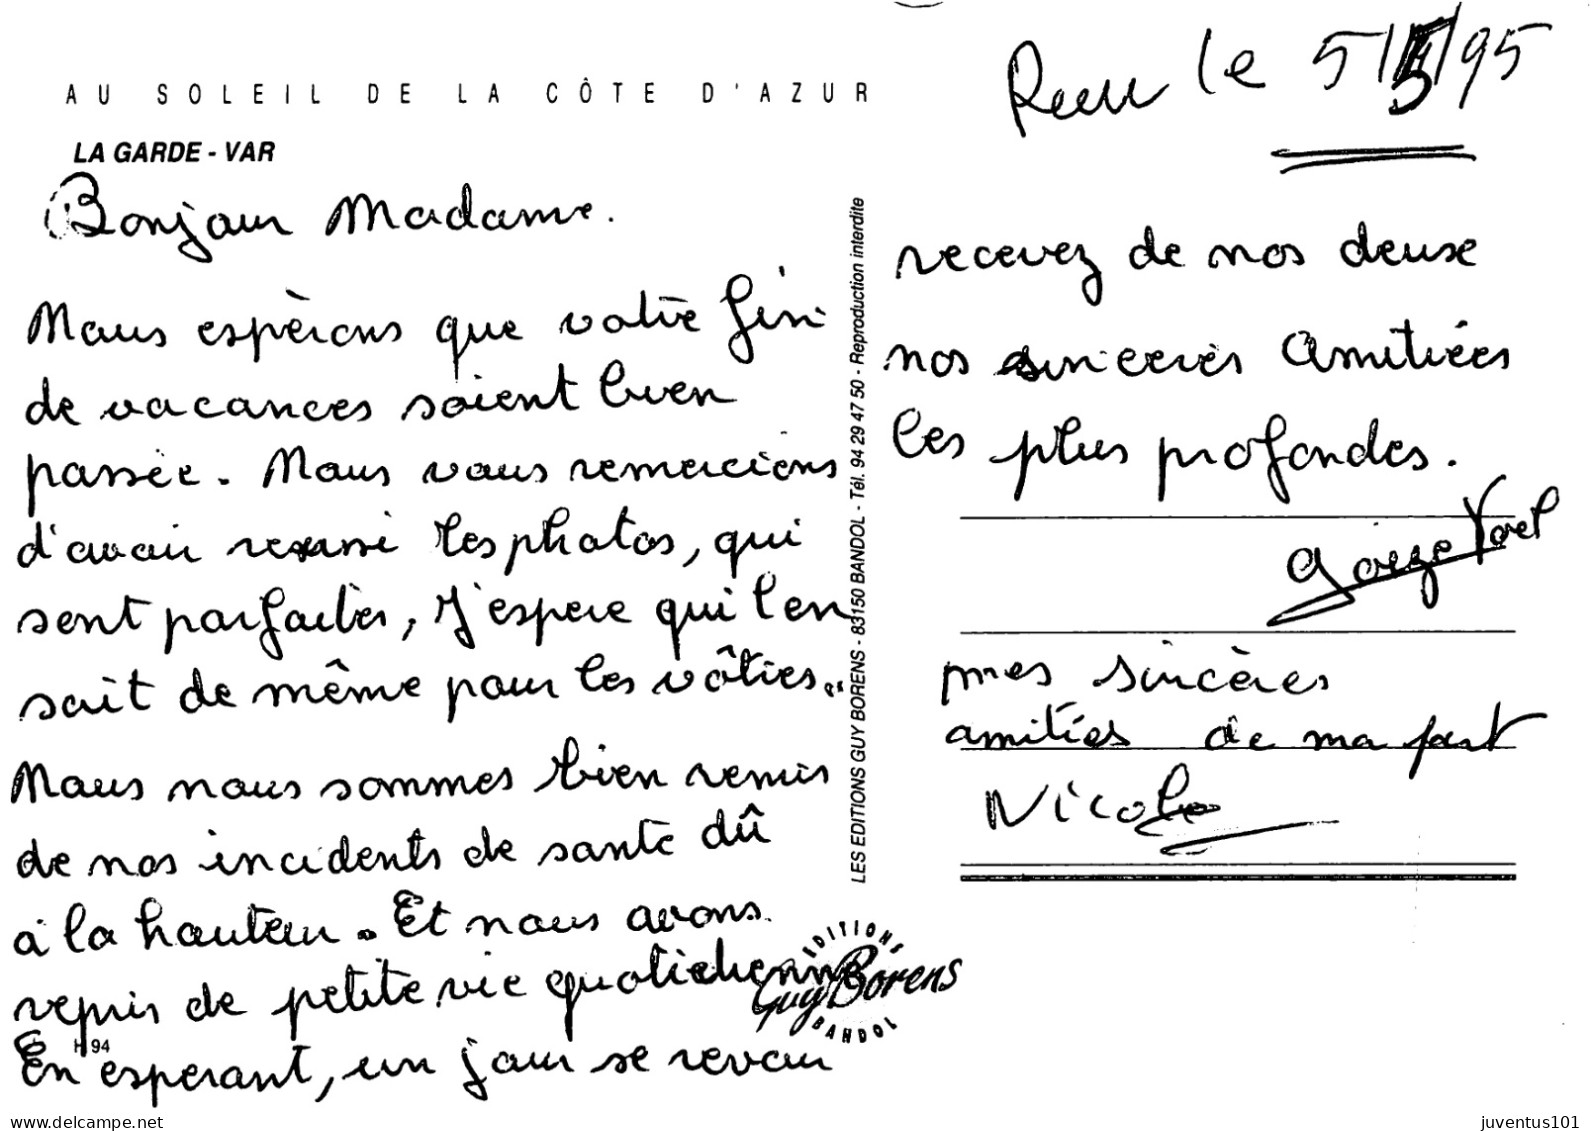 AU SOLEIL DE LA CÔTE D'AZUR
LA GARDE - VAR
Bonjour Madame.
Nous espèrons que votre fin
de vacances soient bien
passée. Nous vous remercions
d'avoir reussi les photos, qui
sont parfaites, J'espere qui l'en
soit de même pour les vôtres..
Nous nous sommes bien remis
de nos incidents de santé dû
a la hauteur. Et nous avons
repris de petite vie quotidienne
H 94
En esperant, un jour se revoir
LES EDITIONS GUY BORENS - 83150 BANDOL - Tél. 94 29 47 50 - Reproduction interdite
EDITIONS
Guy Borens
BANDOL
Reçu le 5/5/95
recevez de nos deuse
nos sinceres amitiées
les plus profondes.
mes sincères
amitiés de ma part
Nicole
www.delcampe.net
juventus101